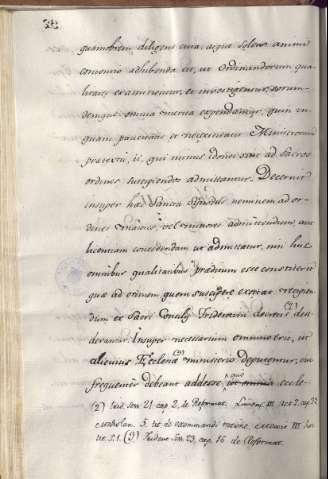 quamobrem diligens cura, atque solers animi
contentio adhibenda est, ut Ordinandorum qua-
litates examinentur, et investigentur, eorum-
demque omnia merita expendantur, quin un-
quam paucitatis et necessitatis Ministrorum
praetextu, ii, qui minus idonei sunt ad Sacros
ordines suscipiendos admittantur. Decernit
insuper haec Sancta Synodus neminem ad or-
dines maiores, vel minores admittendum, aut
licentiam concedendam ut admittatur, nisi his
omnibus qualitatibus praedium esse constiterit
quae ad ordinem quem suscipere exoptat recipien-
dum ex Sacri Concilij Tridentini Decretis (2) desi-
derantur. Insuper necessarium omnino est, ut
alicuius Ecclesiae (3) ministerio deputentur, cui
frequenter debeant addesse, eccle-
(2) Trid. sess. 21 cap. 2, de Reformat. Limens. III act. 2. cap. 32
(3) Trident. sess. 23. cap. 16 de Reformat.